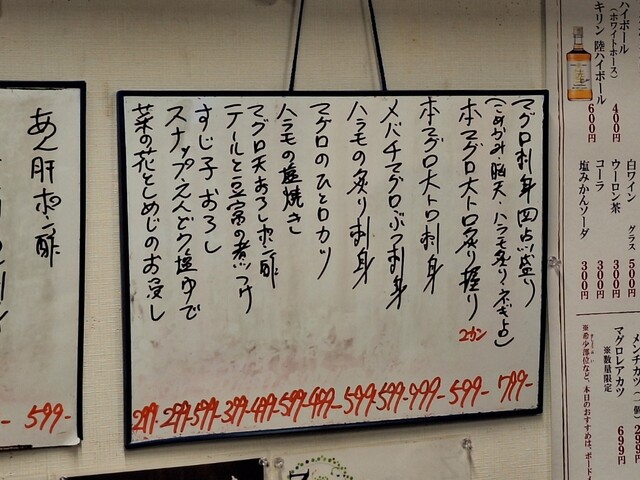 ハイボール
(ホワイトホース)
400円
キリン 陸ハイボール
600円
白ワイン グラス 500円
ウーロン茶 300円
コーラ 300円
塩みかんソーダ 300円
メンチカツ(一個) 299円
マグロレアカツ 699円
※数量限定
マグロ刺身四点盛り 799-
(こめかみ・脳天・ハラモ炙り・ネギトロ)
本マグロ大トロ炙り握り 2カン 599-
本マグロ大トロ刺身 999-
メバチマグロぶつ刺身 599-
ハラモの炙り刺身 599-
マグロのひと口カツ 499-
ハラモの塩焼き 599-
マグロ天おろしポン酢 499-
テールと豆富の煮つけ 399-
すじ子おろし 599-
スナップえんどう塩ゆで 299-
菜の花としめじのお浸し 299-
あん肝ポン酢 599-